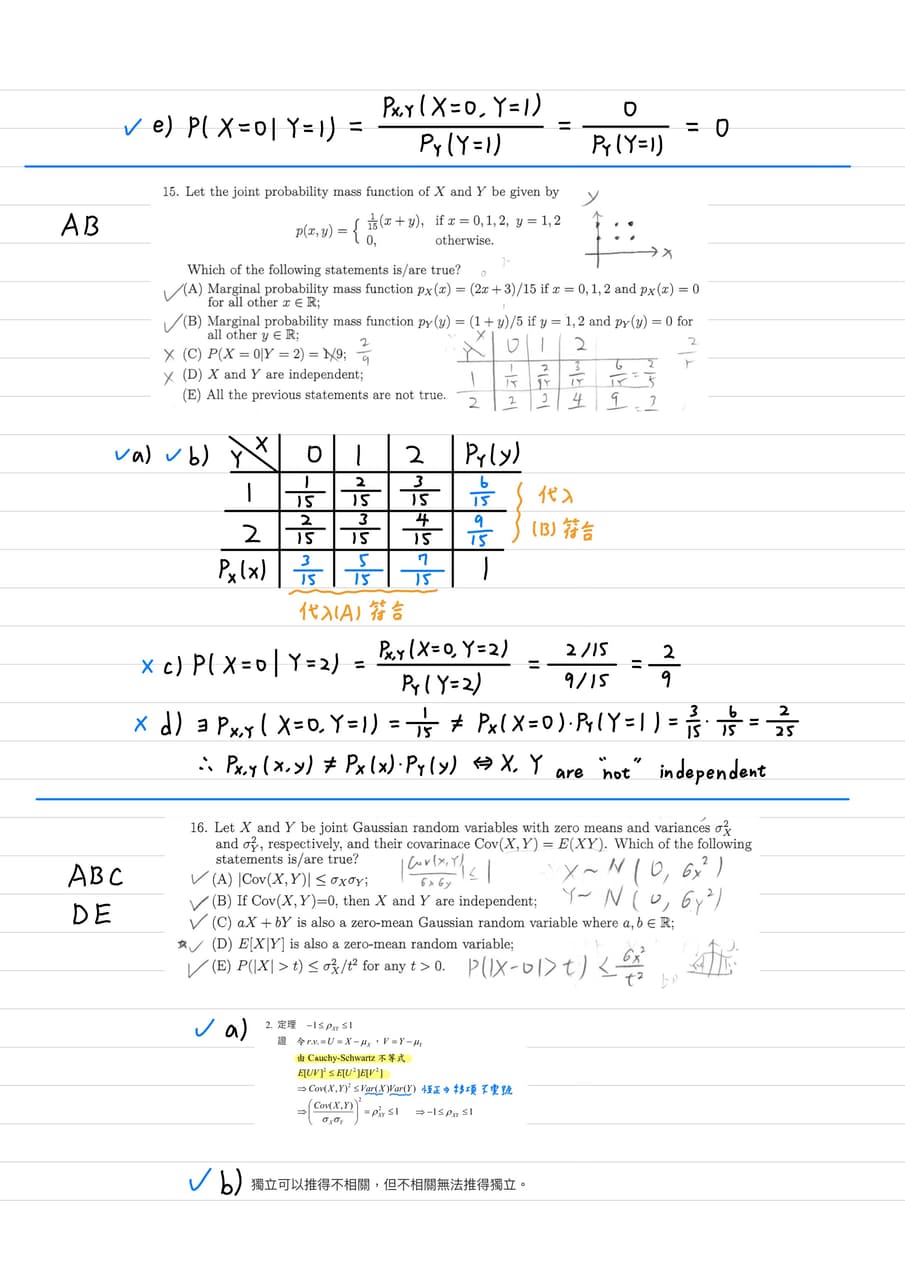 ✓ e) P( X=0 | Y=1) = P_{X,Y}(X=0, Y=1) / P_Y(Y=1) = 0 / P_Y(Y=1) = 0
15. Let the joint probability mass function of X and Y be given by
AB
p(x, y) = { 1/15(x + y), if x = 0, 1, 2, y = 1, 2
0, otherwise.
y
x
Which of the following statements is/are true?
✓(A) Marginal probability mass function p_X(x) = (2x + 3)/15 if x = 0, 1, 2 and p_X(x) = 0
for all other x ∈ ℝ;
✓(B) Marginal probability mass function p_Y(y) = (1 + y)/5 if y = 1, 2 and p_Y(y) = 0 for
all other y ∈ ℝ;
× (C) P(X = 0|Y = 2) = 1/9; 2/9
× (D) X and Y are independent;
(E) All the previous statements are not true.
Y X 0 1 2
1 1/15 2/15 3/15 6/15 = 2/5
2 2 3 4 9
✓a) ✓b) Y X 0 1 2 P_Y(y)
1 1/15 2/15 3/15 6/15 代入
2 2/15 3/15 4/15 9/15 (B) 符合
P_X(x) 3/15 5/15 7/15 1
代入(A) 符合
× c) P( X=0 | Y=2) = P_{X,Y}(X=0, Y=2) / P_Y(Y=2) = 2/15 / 9/15 = 2/9
× d) ∃ P_{X,Y}( X=0, Y=1) = 1/15 ≠ P_X(X=0)·P_Y(Y=1) = 3/15 · 6/15 = 2/25
∴ P_{X,Y}(x,y) ≠ P_X(x)·P_Y(y) ⇔ X, Y are "not" independent
16. Let X and Y be joint Gaussian random variables with zero means and variances σ_X^2
and σ_Y^2, respectively, and their covarinace Cov(X, Y) = E(XY). Which of the following
statements is/are true?
ABC
DE
✓(A) |Cov(X, Y)| ≤ σ_Xσ_Y; |Cov(X,Y)/σxσy| ≤ 1 X ~ N ( 0, σx²)
✓(B) If Cov(X, Y)=0, then X and Y are independent; Y ~ N ( 0, σy²)
✓(C) aX + bY is also a zero-mean Gaussian random variable where a, b ∈ ℝ;
☆✓(D) E[X|Y] is also a zero-mean random variable;
✓(E) P(|X| > t) ≤ σ_X^2/t^2 for any t > 0. P(|X-0|>t) ≤ σx²/t²
✓ a) 2. 定理 -1 ≤ ρ_XY ≤ 1
證 令 r.v.= U = X − μ_X ，V = Y − μ_Y
由 Cauchy-Schwartz 不等式
E[UV]² ≤ E[U²]E[V²]
⇒ Cov(X,Y)² ≤ Var(X)Var(Y) 恆正⇒移項不變號
⇒ (Cov(X,Y) / σ_Xσ_Y)² = ρ²_XY ≤ 1 ⇒ −1 ≤ ρ_XY ≤ 1
✓ b) 獨立可以推得不相關，但不相關無法推得獨立。